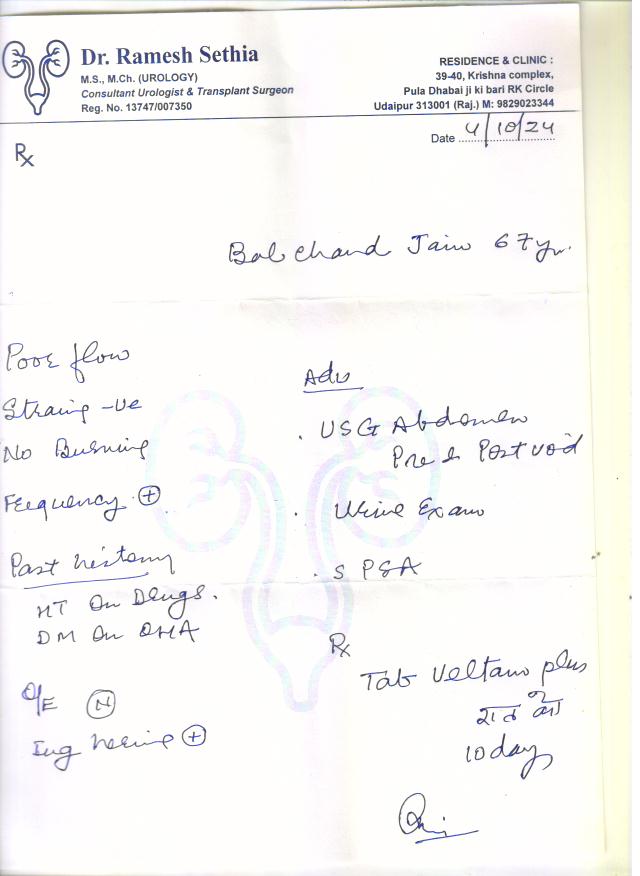 Dr. Ramesh Sethia
M.S., M.Ch. (UROLOGY)
Consultant Urologist & Transplant Surgeon
Reg. No. 13747/007350
RESIDENCE & CLINIC :
39-40, Krishna complex,
Pula Dhabai ji ki bari RK Circle
Udaipur 313001 (Raj.) M: 9829023344
Date 4/10/24
Rx
Bal Chand Jain 67 yr.
Poor flow
Straing -ve
No Burning
Frequency +
Past history
HT On Drugs.
DM On OHA
O/E N
Ing hernia +
Adv
. USG Abdomen
Pre & Post void
. Urine Exam
. S PSA
Rx
Tab Veltam plus
रात को
10 day